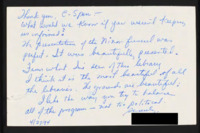 Thank you, C-Span —
What would we know if you weren't keeping
us informed?
The presentation of the Nixon funeral was
perfect. It was beautifully presented.
I am what I've seen of this library
I think it is the most beautiful of all
the libraries. Its grounds are beautiful,
I like the way you try to balance
all the programs — not so political.
4/27/94